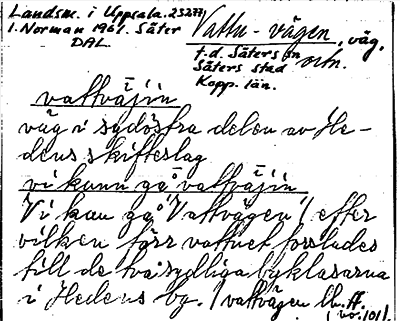 Landsm. i Uppsala. 25277
I. Norman 1961. Säter
DAL.
Vattu-vägen, väg,
f.d. Säters sn ortn.
Säters stad
Kopp. län.
vattväjin
väg i sydöstra delen av He-
dens skifteslag
vi kunn gå vattväjin
Vi kan gå Vattvägen (efter
vilken förr vattnet forslades
till de två sydliga byklasarna
i Hedens by. / vattvägen lh. H.
(nr. 101).